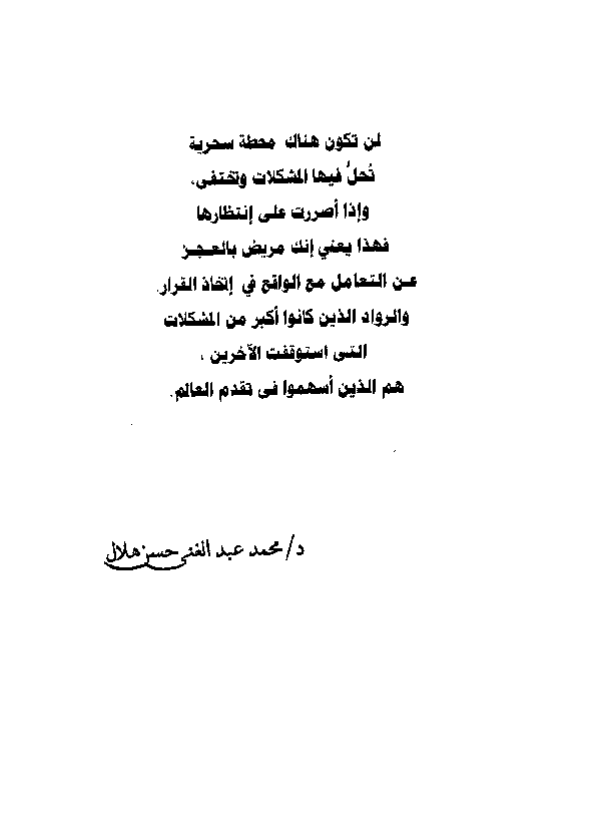 لن تكون هناك محطة سحرية
تُحلُّ فيها المشكلات وتختفى،
وإذا أصررت على إنتظارها
فهذا يعني إنك مريض بالعجـز
عـن التعامل مع الواقع في إتخاذ القرار.
والرواد الذين كانوا أكبر من المشكلات
التـى استوقفت الآخرين ،
هم الذين أسهموا فى تقدم العالم.
د/ محمد عبد الغنى حسن هلال